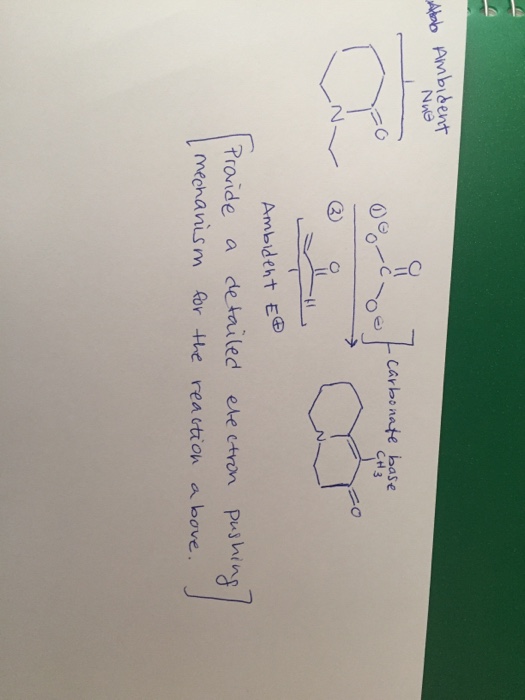 Ambident
Nu⊖
O
N
① ⊖O-C-O⊖
O
] carbonate base
② O
H
Ambident E⊕
CH3
N
O
[Provide a detailed electron pushing
mechanism for the reaction above.]